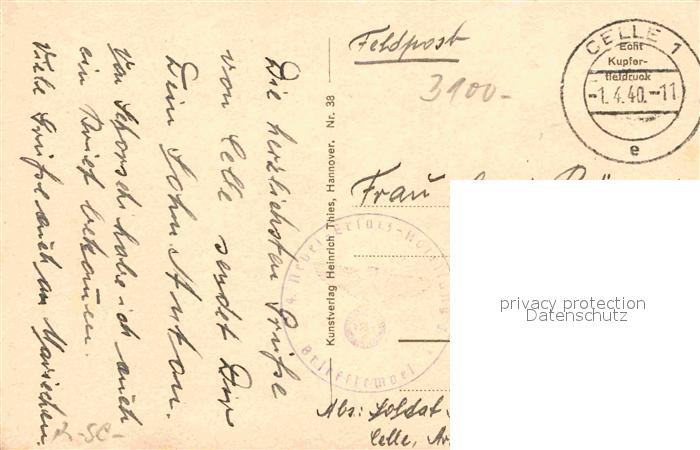 Feldpost
3100.-
CELLE 1
Echt
Kupfer-
tiefdruck
-1.4.40.-11
e
Die herzlichsten Grüße
von Celle sendet Dir
Dein Sohn Anton.
Von habe ich auch
ein Brief bekommen.
Viele Grüße auch an
Kunstverlag Heinrich Thies, Hannover. Nr. 38
Frau
Briefstempel
Abs: Soldat
Celle,
privacy protection
Datenschutz